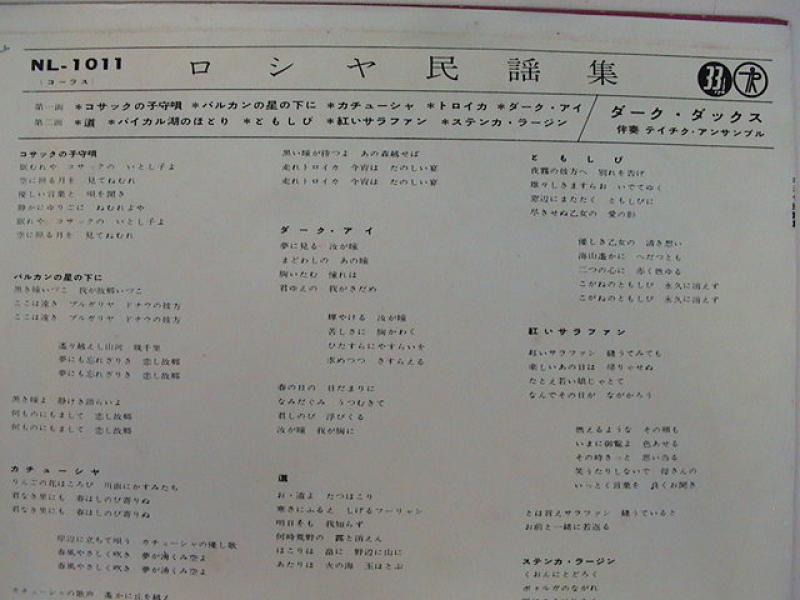 NL-1011
(コーラス)
ロシヤ民謡集
33
第一面 *コサックの子守唄 *バルカンの星の下に *カチューシャ *トロイカ *ダーク・アイ
第二面 *道 *バイカル湖のほとり *ともしび *紅いサラファン *ステンカ・ラージン
ダーク・ダックス
伴奏 テイチク・アンサンブル
コサックの子守唄
眠むれや コサックの いとし子よ
空に照る月を 見てねむれ
優しい言葉と 唄を聞き
静かにゆりごに ねむれよや
眠れや コサックの いとし子よ
空に照る月を 見てねむれ
バルカンの星の下に
黒き瞳いづこ 我が故郷いづこ
ここは遠き ブルガリヤ ドナウの彼方
ここは遠き ブルガリヤ ドナウの彼方
濁り越えし山河 幾千里
夢にも忘れざりき 恋し故郷
夢にも忘れざりき 恋し故郷
黒き瞳よ 静けき語らいよ
何ものにもまして 恋し故郷
何ものにもまして 恋し故郷
カチューシャ
りんごの花ほころび 川面にかすみたち
君なき里にも 春はしのび寄りぬ
君なき里にも 春はしのび寄りぬ
岸辺に立ちて唄う カチューシャの優し歌
春風やさしく吹き 夢が湧くみ空よ
春風やさしく吹き 夢が湧くみ空よ
カチューシャの歌声 遙かに丘を越え
黒い瞳が待つよ あの森越せば
走れトロイカ 今宵は たのしい宴
走れトロイカ 今宵は たのしい宴
ダーク・アイ
夢に見る 汝が瞳
まどわしの あの瞳
胸いたむ 憧れは
君ゆえの 我がさだめ
輝やける 汝が瞳
苦しさに 胸かわく
ひたすらにやすらいを
求めつつ さすらえる
春の日の 日だまりに
なみだぐみ うつむきて
君しのび 浮びくる
汝が瞳 我が胸に
道
お・道よ たつほこり
寒さにふるえ しげるブーリャン
明日をも 我知らず
何時荒野の 露と消えん
ほこりは 畠に 野辺に山に
あたりは 火の海 玉はとぶ
ともしび
夜霧の彼方へ 別れを告げ
雄々しきますらお いでてゆく
窓辺にまたたく ともしびに
尽きせぬ乙女の 愛の影
優しき乙女の 清き想い
海山遙かに へだつとも
二つの心に 赤く燃ゆる
こがねのともしび 永久に消えず
こがねのともしび 永久に消えず
紅いサラファン
紅いサラファン 縫うてみても
楽しいあの日は 帰りゃせぬ
たとえ若い娘じゃとて
なんでその日が ながかろう
燃えるような その頬も
いまに御覧よ 色あせる
その時きっと 思い当る
笑うたりしないで 母さんの
いっとく言葉を 良くお聞き
とは言えサラファン 縫うていると
お前と一緒に若返る
ステンカ・ラージン
くおんにとどろく
ボォルガのながれ